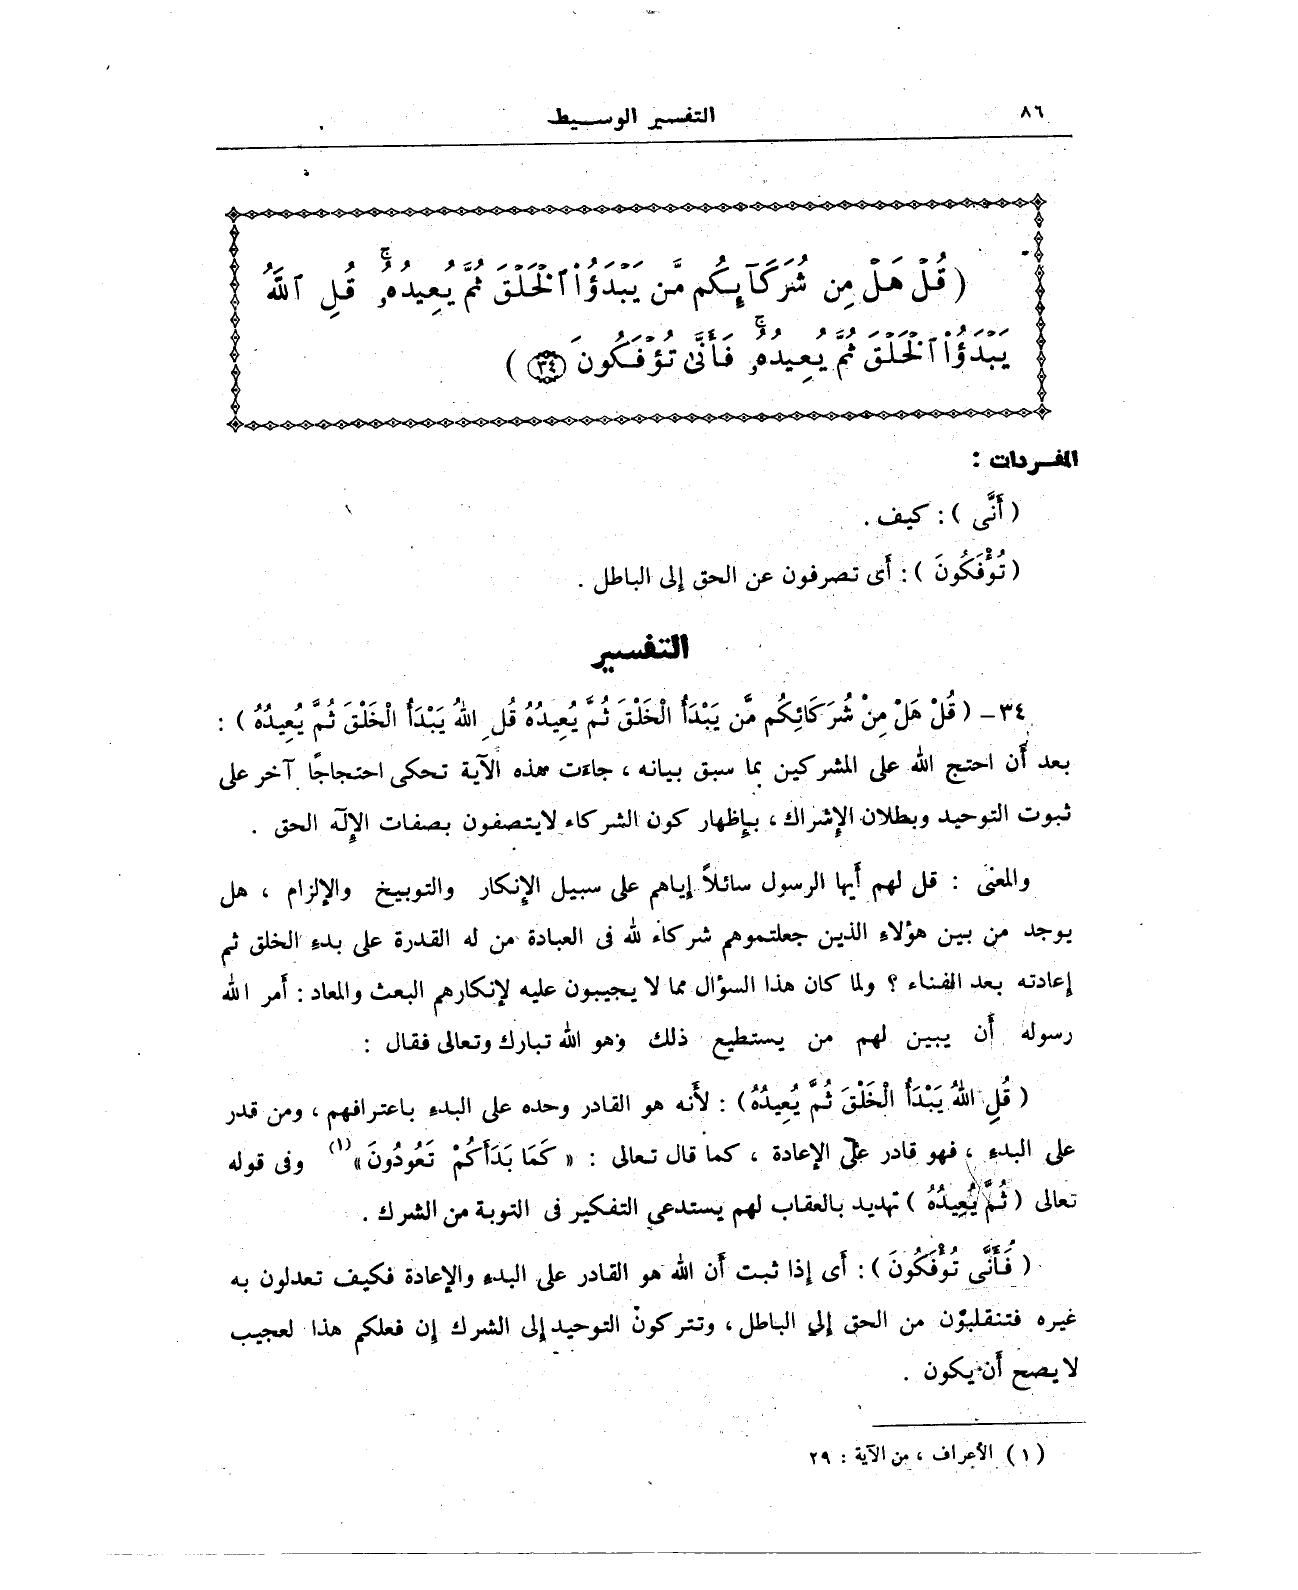 ٨٦
التفسير الوسيط
( قُلْ هَلْ مِن شُرَكَآئِكُم مَّن يَبْدَؤُا۟ ٱلْخَلْقَ ثُمَّ يُعِيدُهُۥ ۚ قُلِ ٱللَّهُ
يَبْدَؤُا۟ ٱلْخَلْقَ ثُمَّ يُعِيدُهُۥ ۚ فَأَنَّىٰ تُؤْفَكُونَ ٣٤ )
المفردات :
( أَنَّى ) : كيف .
( تُؤْفَكُونَ ) : أَى تصرفون عن الحق إلى الباطل .
التفسير
٣٤ - ( قُلْ هَلْ مِنْ شُرَكَائِكُم مَّن يَبْدَأُ الْخَلْقَ ثُمَّ يُعِيدُهُ قُلِ اللهُ يَبْدَأُ الْخَلْقَ ثُمَّ يُعِيدُهُ ) :
بعد أَن احتج الله على المشركين بما سبق بيانه ، جاءَت هذه الآية تحكى احتجاجًا آخر على
ثبوت التوحيد وبطلان الإِشراك ، بإِظهار كون الشركاء لايتصفون بصفات الإِلَه الحق .
والمعنى : قل لهم أَيها الرسول سائلاً إِياهم على سبيل الإِنكار والتوبيخ والإِلزام ، هل
يوجد من بين هؤلاءِ الذين جعلتموهم شركاءَ لله فى العبادة من له القدرة على بدءِ الخلق ثم
إعادته بعد الفناء ؟ ولما كان هذا السؤال مما لا يجيبون عليه لإِنكارهم البعث والمعاد : أَمر الله
رسوله أَن يبين لهم من يستطيع ذلك وهو الله تبارك وتعالى فقال :
( قُلِ اللهُ يَبْدَأُ الْخَلْقَ ثُمَّ يُعِيدُهُ ) : لأَنه هو القادر وحده على البدءِ باعترافهم ، ومن قدر
على البدءِ ، فهو قادر على الإعادة ، كما قال تعالى : « كَمَا بَدَأَكُمْ تَعُودُونَ » (١) وفى قوله
تعالى ( ثُمَّ يُعِيدُهُ ) تهديد بالعقاب لهم يستدعي التفكير فى التوبة من الشرك .
( فَأَنَّى تُؤْفَكُونَ ) : أَى إِذا ثبت أَن الله هو القادر على البدءِ والإعادة فكيف تعدلون به
غيره فتنقلبون من الحق إلى الباطل ، وتتركون التوحيد إلى الشرك إن فعلكم هذا لعجيب
لا يصح أَن يكون .
( ١ ) الأعراف ، من الآية : ٢٩